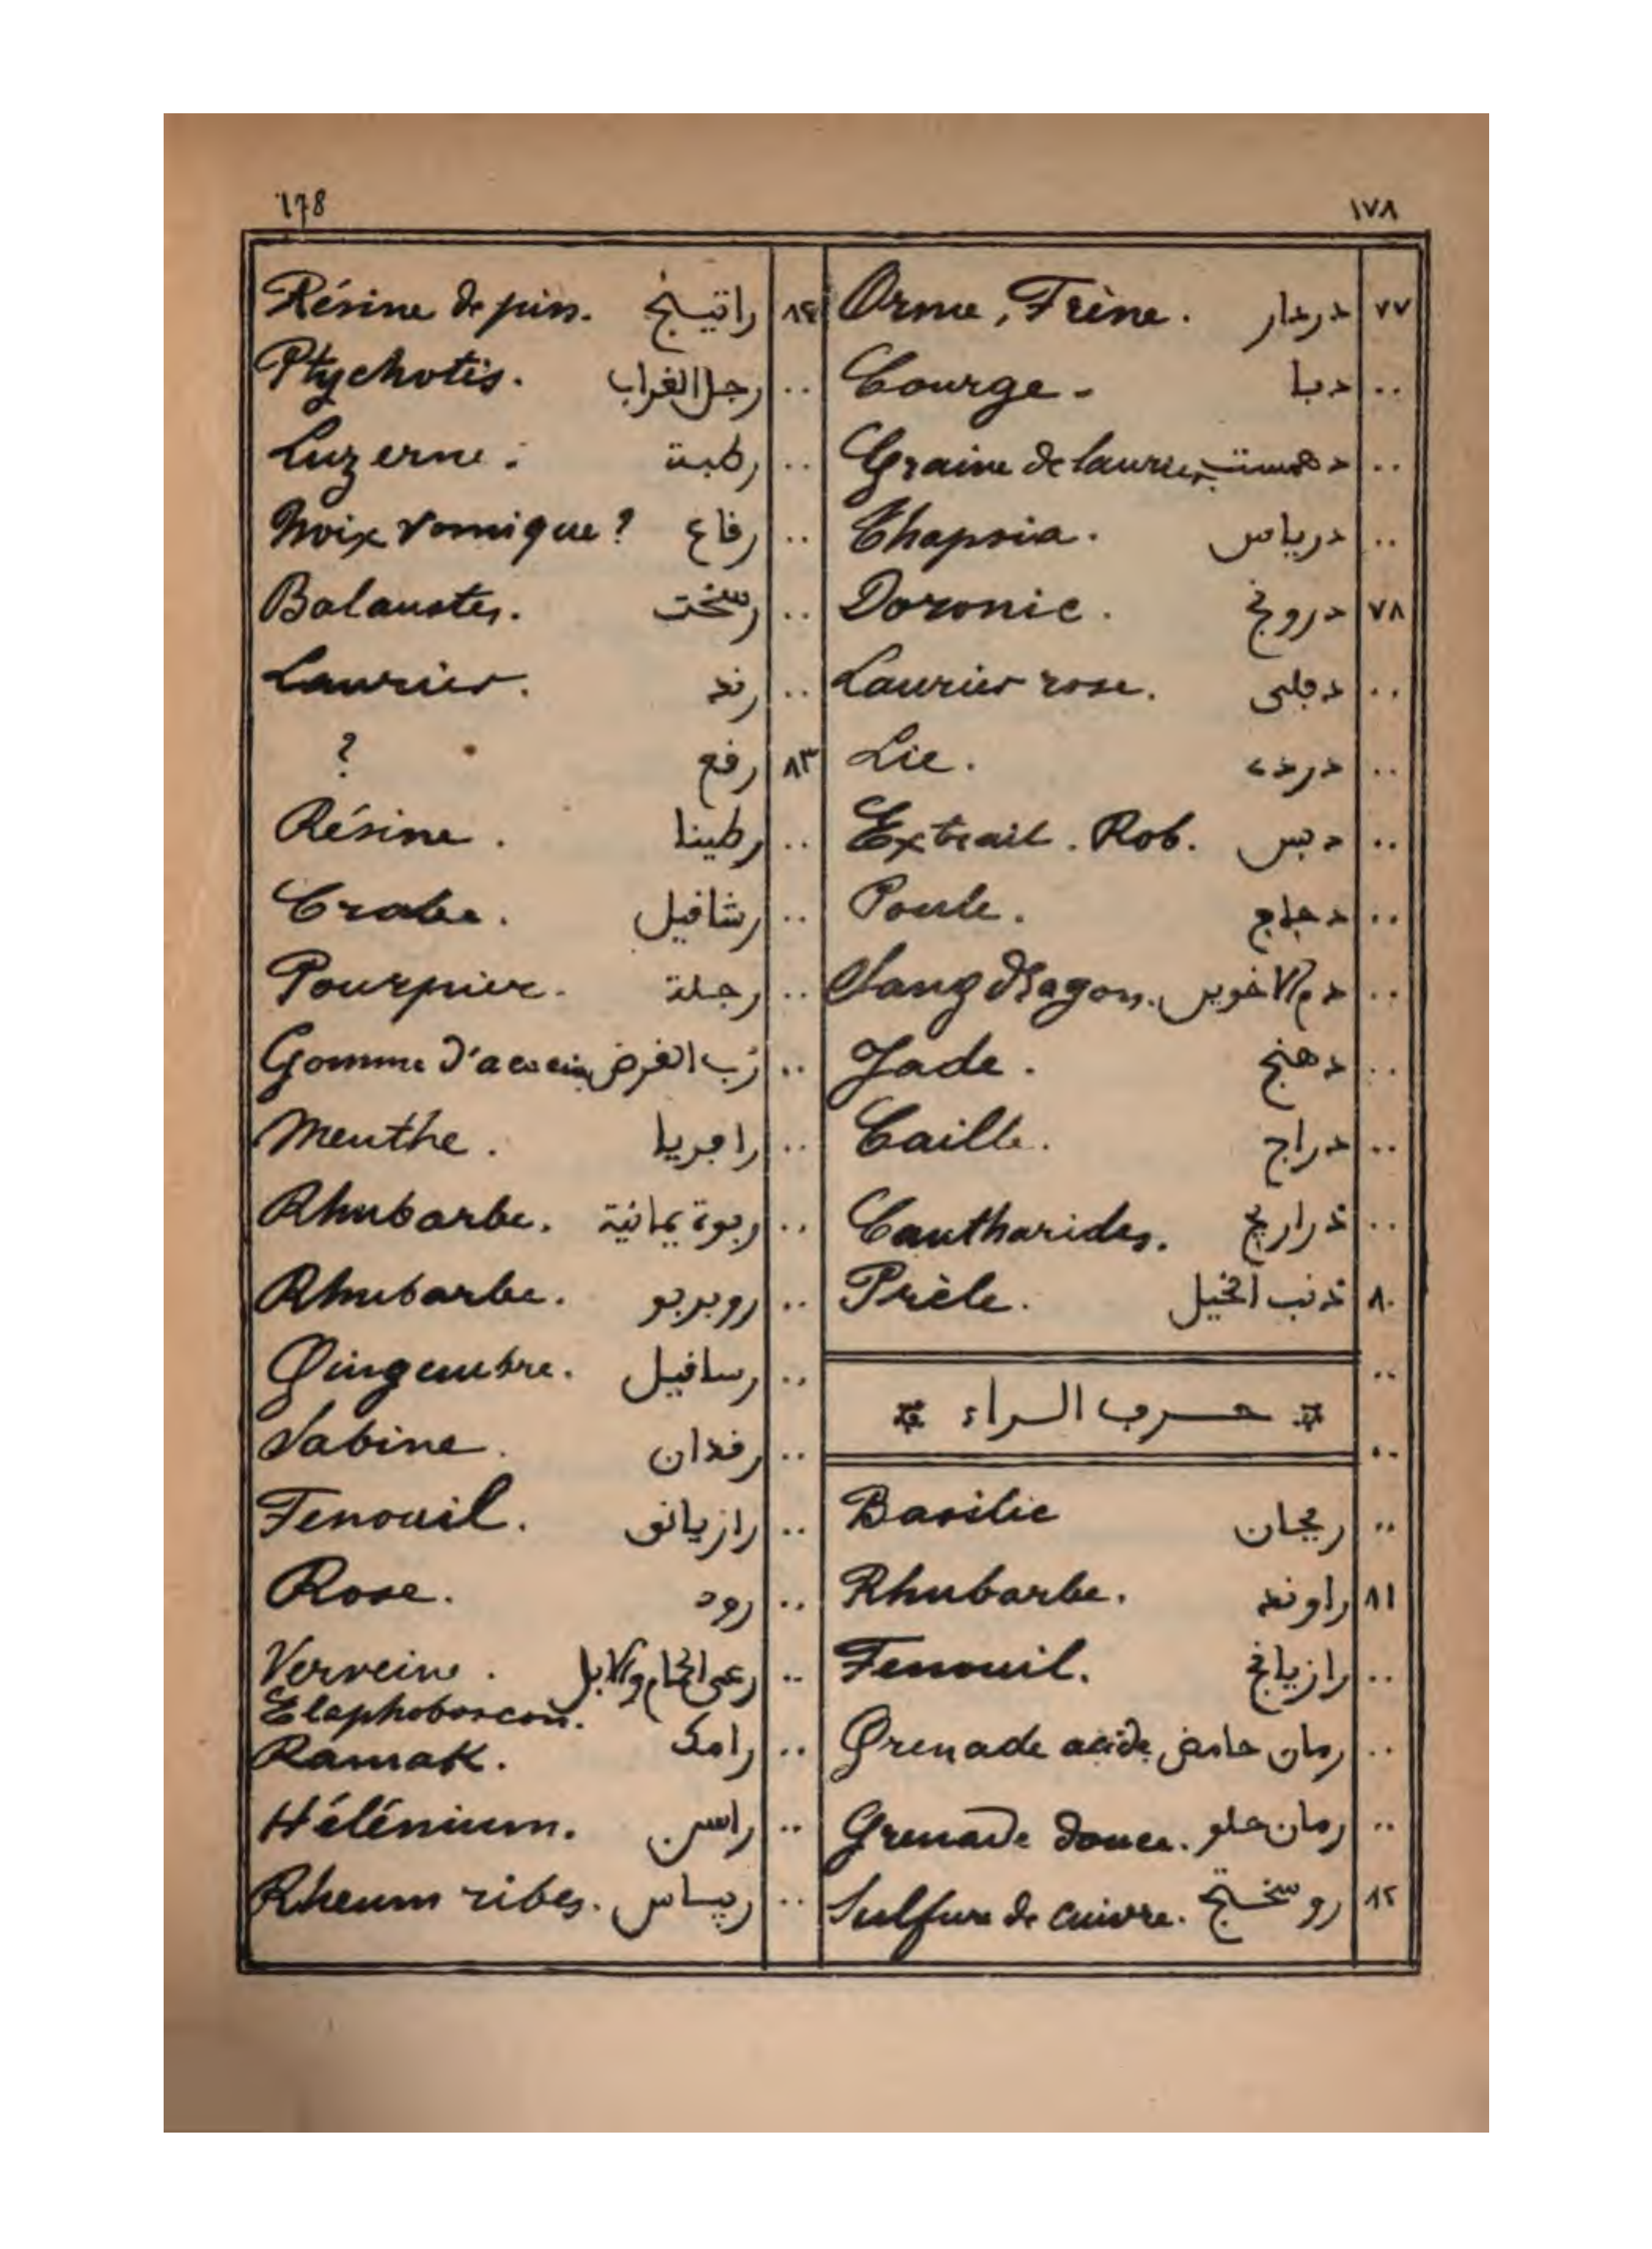 178 ١٧٨
٧٧ دردار Orme, Frène.
.. دبا Courge.
.. دهمست Graine de laurier
.. درياس Thapsia.
٧٨ درونج Doronic.
.. دفلى Laurier rose.
.. دردى Lie.
.. دبس Extrait. Rob.
.. دجاج Poule.
.. دم الاخوين Sang dragon.
.. دهنج Jade.
.. دراج Caille.
.. ذراريح Cantharides.
٨٠ ذنب الخيل Prèle.
..
حرف الراء
..
.. ريحان Basilic
٨١ راوند Rhubarbe.
.. رازيانج Fenouil.
.. رمان حامض Grenade acide.
.. رمان حلو Grenade douce.
٨٢ روسختج Sulfure de cuivre.
٨٢ راتينج Résine de pin.
.. رجل الغراب Ptychotis.
.. رطبة Luzerne.
.. رقاع Noix vomique?
.. رسخت Balaustes.
.. رند Laurier.
٨٣ رقع ?
.. رطينا Résine.
.. رشافيل Crabe.
.. رجلة Pourpier.
.. رُب الغرض Gomme d'acacia
.. راجريا Menthe.
.. ربوة يمانية Rhubarbe.
.. روبربو Rhubarbe.
.. رسافيل Gingembre.
.. رفدان Sabine.
.. رازيانق Fenouil.
.. رود Rose.
.. رعى الحمام والابل Verveine.
Elaphoboscon.
.. رامك Ramak.
.. راسن Hélénium.
.. ريباس Rheum ribes.